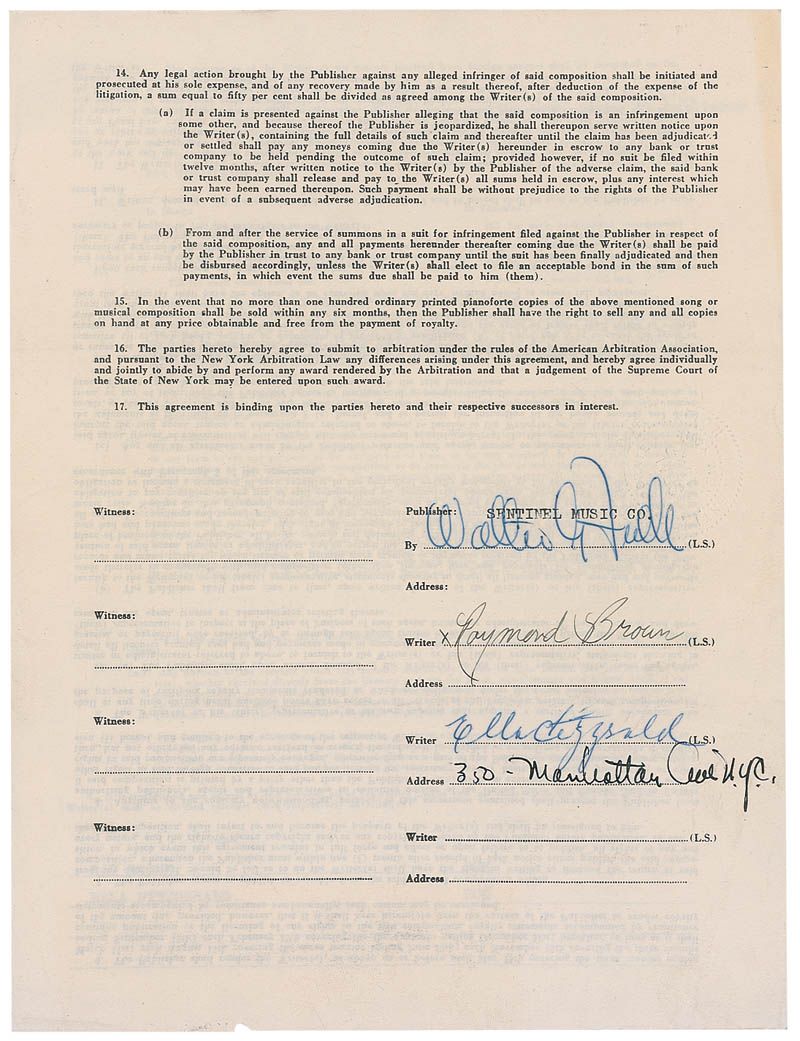 14. Any legal action brought by the Publisher against any alleged infringer of said composition shall be initiated and
prosecuted at his sole expense, and of any recovery made by him as a result thereof, after deduction of the expense of the
litigation, a sum equal to fifty per cent shall be divided as agreed among the Writer(s) of the said composition.
(a) If a claim is presented against the Publisher alleging that the said composition is an infringement upon
some other, and because thereof the Publisher is jeopardized, he shall thereupon serve written notice upon
the Writer(s), containing the full details of such claim and thereafter until the claim has been adjudicated
or settled shall pay any moneys coming due the Writer(s) hereunder in escrow to any bank or trust
company to be held pending the outcome of such claim; provided however, if no suit be filed within
twelve months, after written notice to the Writer(s) by the Publisher of the adverse claim, the said bank
or trust company shall release and pay to the Writer(s) all sums held in escrow, plus any interest which
may have been earned thereupon. Such payment shall be without prejudice to the rights of the Publisher
in event of a subsequent adverse adjudication.
(b) From and after the service of summons in a suit for infringement filed against the Publisher in respect of
the said composition, any and all payments hereunder thereafter coming due the Writer(s) shall be paid
by the Publisher in trust to any bank or trust company until the suit has been finally adjudicated and then
be disbursed accordingly, unless the Writer(s) shall elect to file an acceptable bond in the sum of such
payments, in which event the sums due shall be paid to him (them).
15. In the event that no more than one hundred ordinary printed pianoforte copies of the above mentioned song or
musical composition shall be sold within any six months, then the Publisher shall have the right to sell any and all copies
on hand at any price obtainable and free from the payment of royalty.
16. The parties hereto hereby agree to submit to arbitration under the rules of the American Arbitration Association,
and pursuant to the New York Arbitration Law any differences arising under this agreement, and hereby agree individually
and jointly to abide by and perform any award rendered by the Arbitration and that a judgement of the Supreme Court of
the State of New York may be entered upon such award.
17. This agreement is binding upon the parties hereto and their respective successors in interest.
Witness: Publisher: SENTINEL MUSIC CO.
By Walter G (L.S.)
Address:
Witness:
Writer x Raymond Brown (L.S.)
Address
Witness:
Writer Ella Fitzgerald (L.S.)
Address 350 - Manhattan Ave N.Y.C.
Witness:
Writer (L.S.)
Address